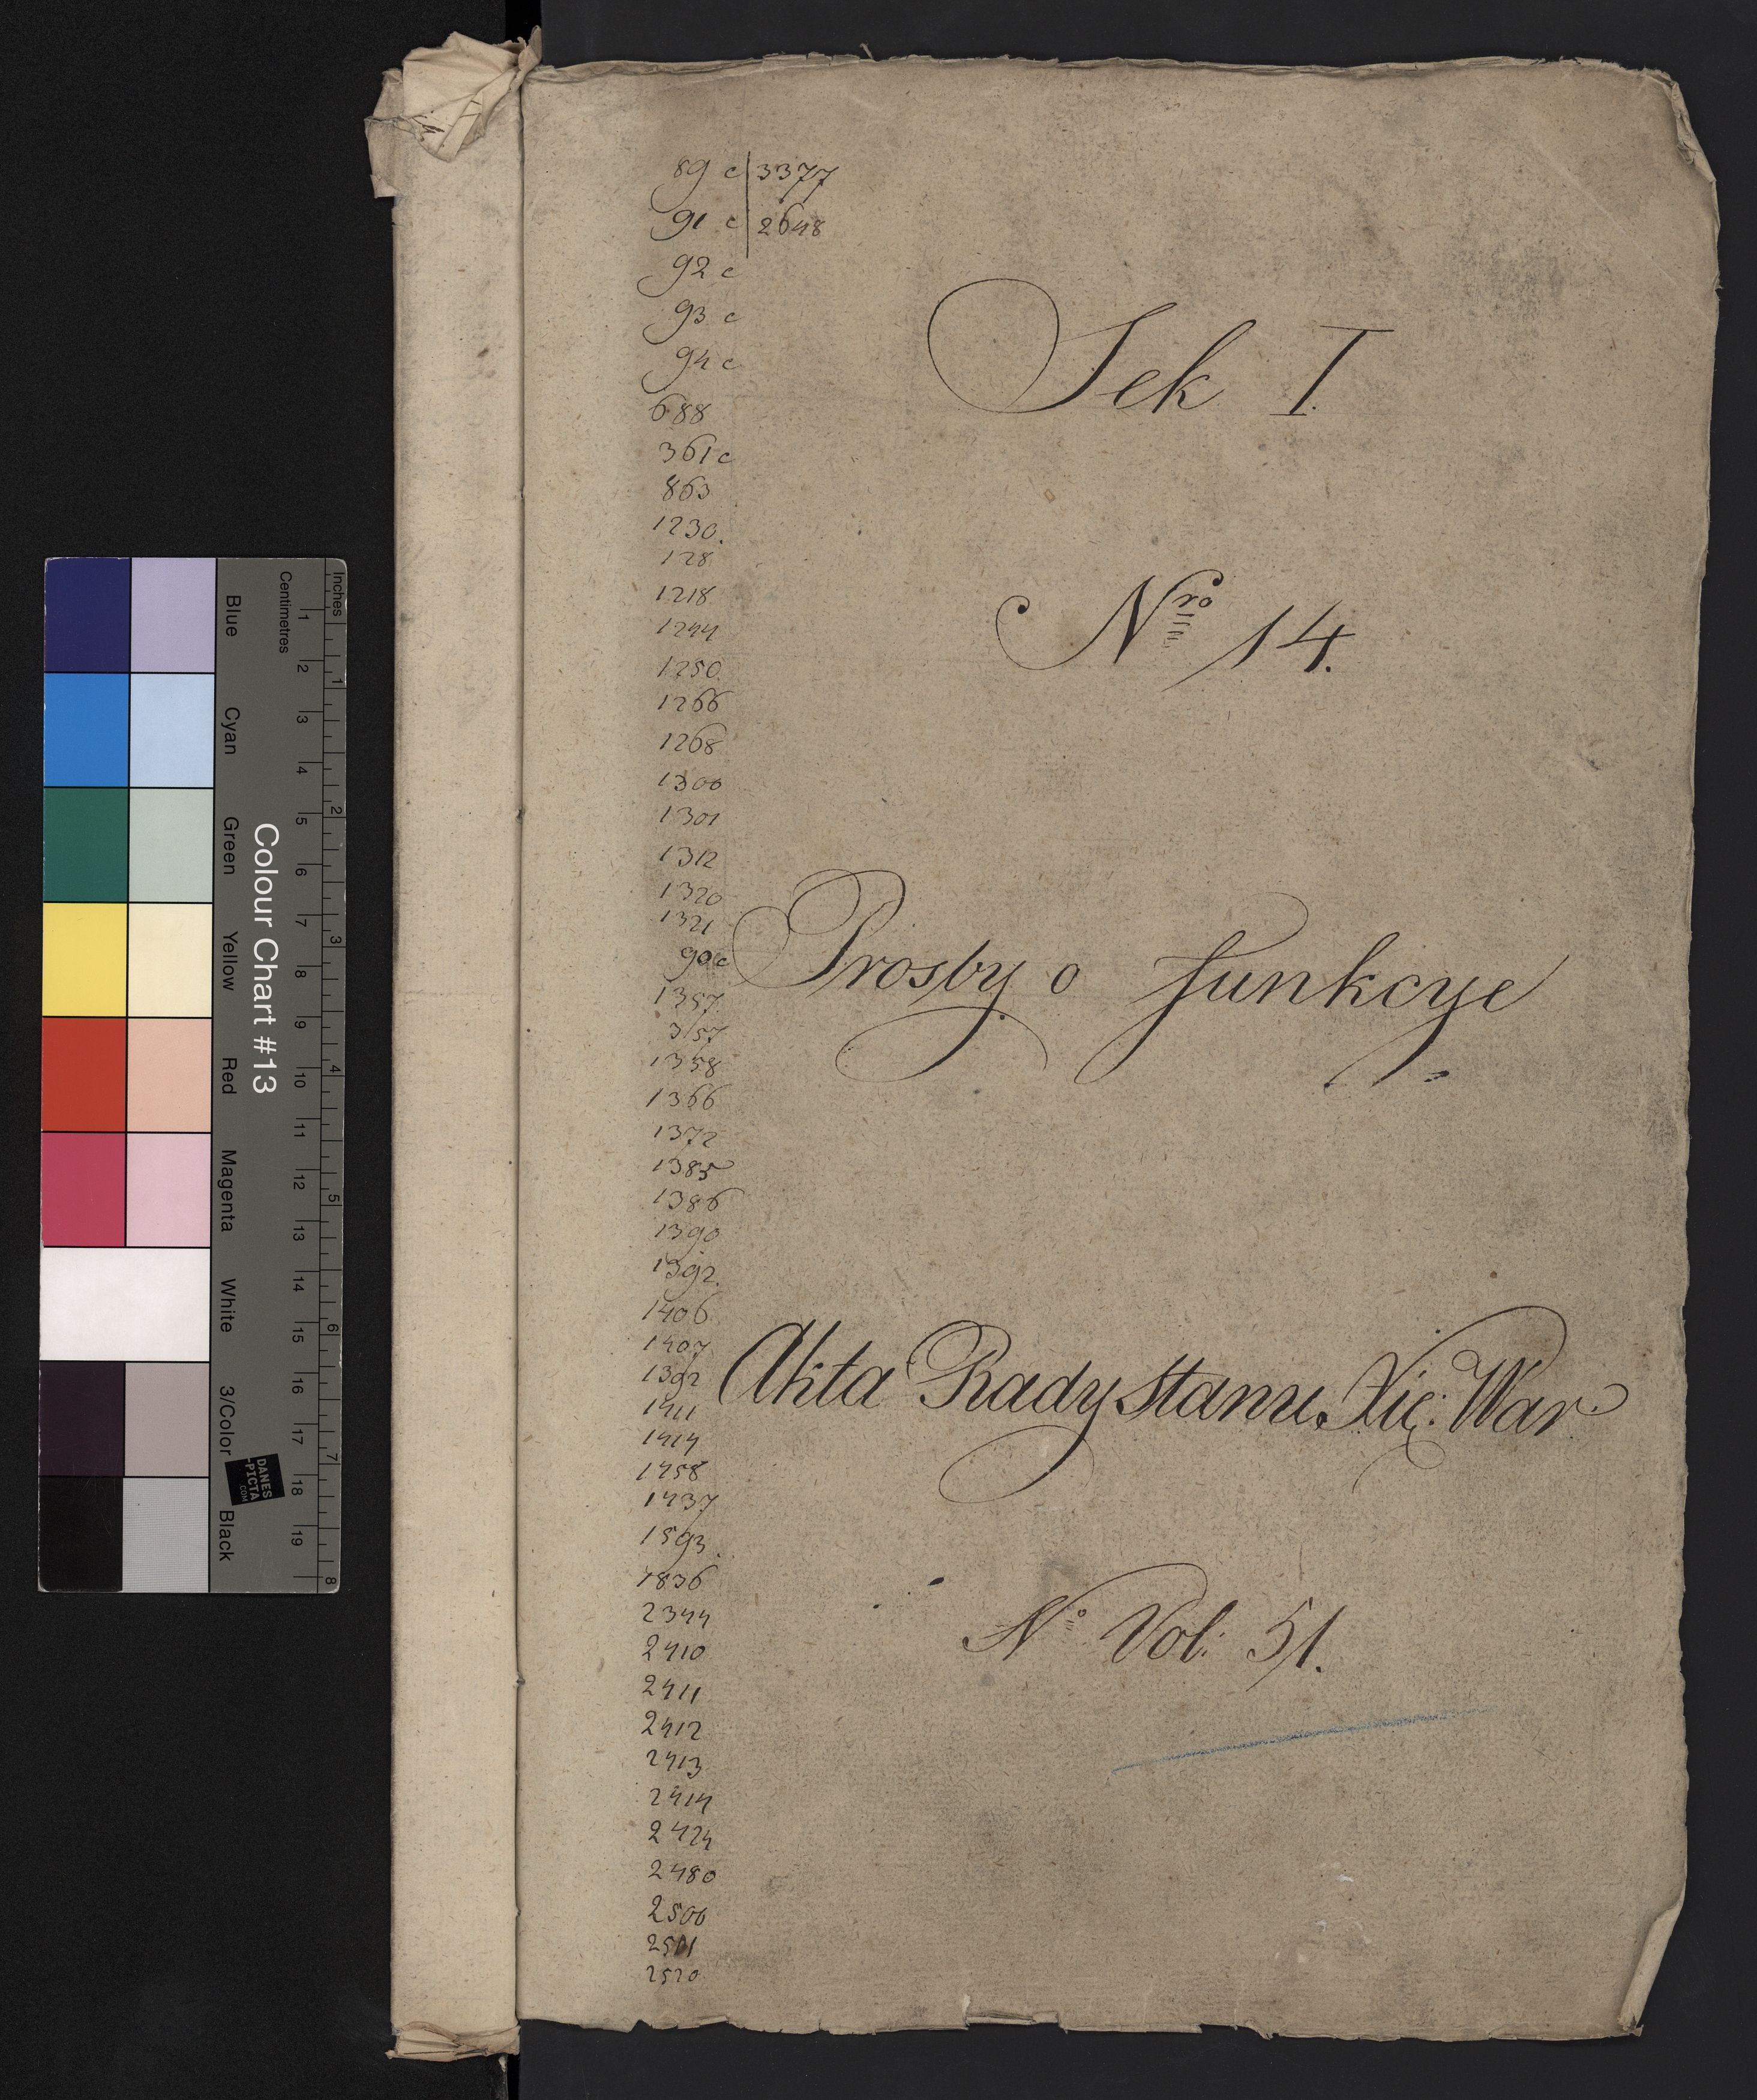 89 c 3377
91 c 2648
92 c
93 c
94 c
688
361 c
863
1230.
128
1218
1244
1250.
1266
1268
1300
1301
1312
1320
1321
90 c
1357.
3157
1358
1366
1372
1385
1386
1390
1392.
1406
1407
1392
1411
1414
1458
1437
1593.
1836
2344
2410
2411
2412
2413
2414
2424
2480
2506
2511
2520
Sek I.
Nro 14.
Prosby o funkcye
Akta Rady Stanu Xię: War.
No Vol: 51.
Colour Chart #13
Blue
Cyan
Green
Yellow
Red
Magenta
White
3/Color
Black
Centimetres
1 2 3 4 5 6 7 8 9 10 11 12 13 14 15 16 17 18 19
Inches
1 2 3 4 5 6 7 8
DANES
-PICTA
.COM